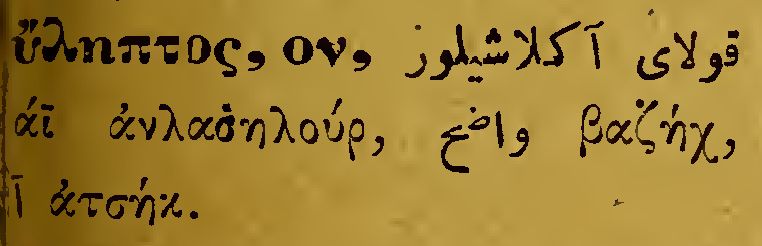 ὔληπτος, ον, قولای آكلاشیلور
άϊ ἀνλασ̇ηλούρ, واضح βαζήχ,
آ ἀτσήκ.